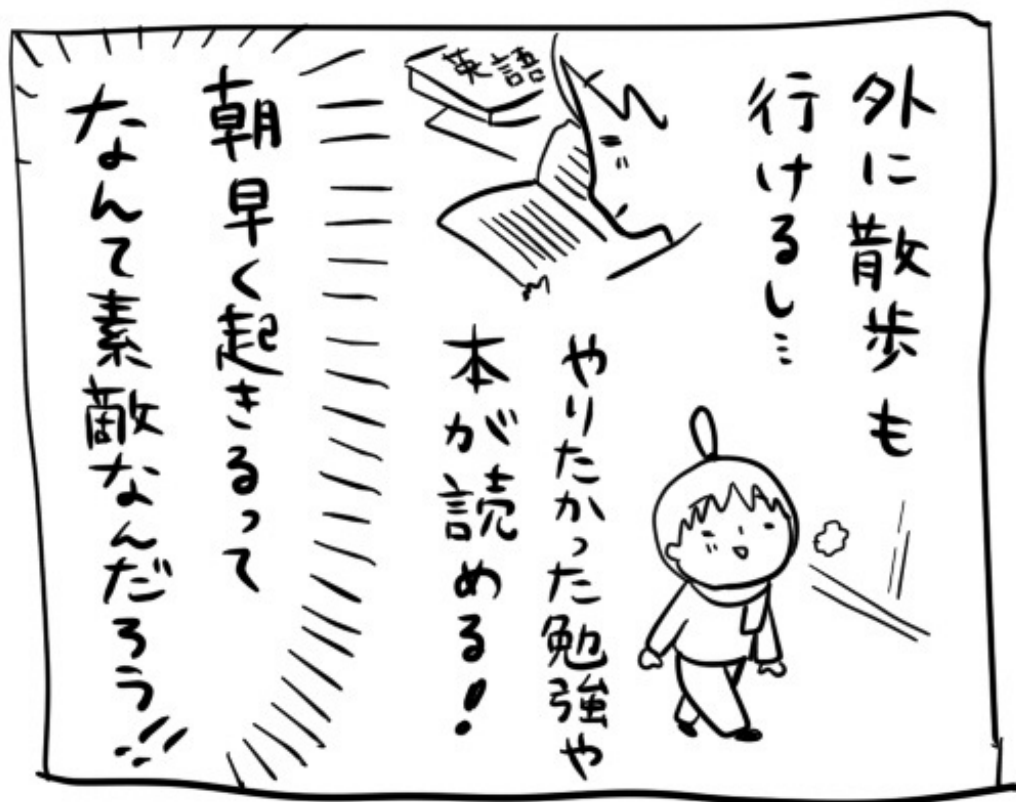 外に散歩も
行けるし…
英語
やりたかった勉強や
本が読める!
朝早く起きるって
なんて素敵なんだろう!!